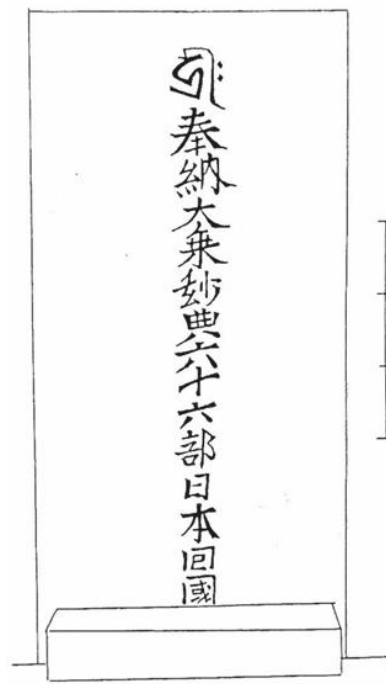 奉納大乗玅典六十六部日本回國